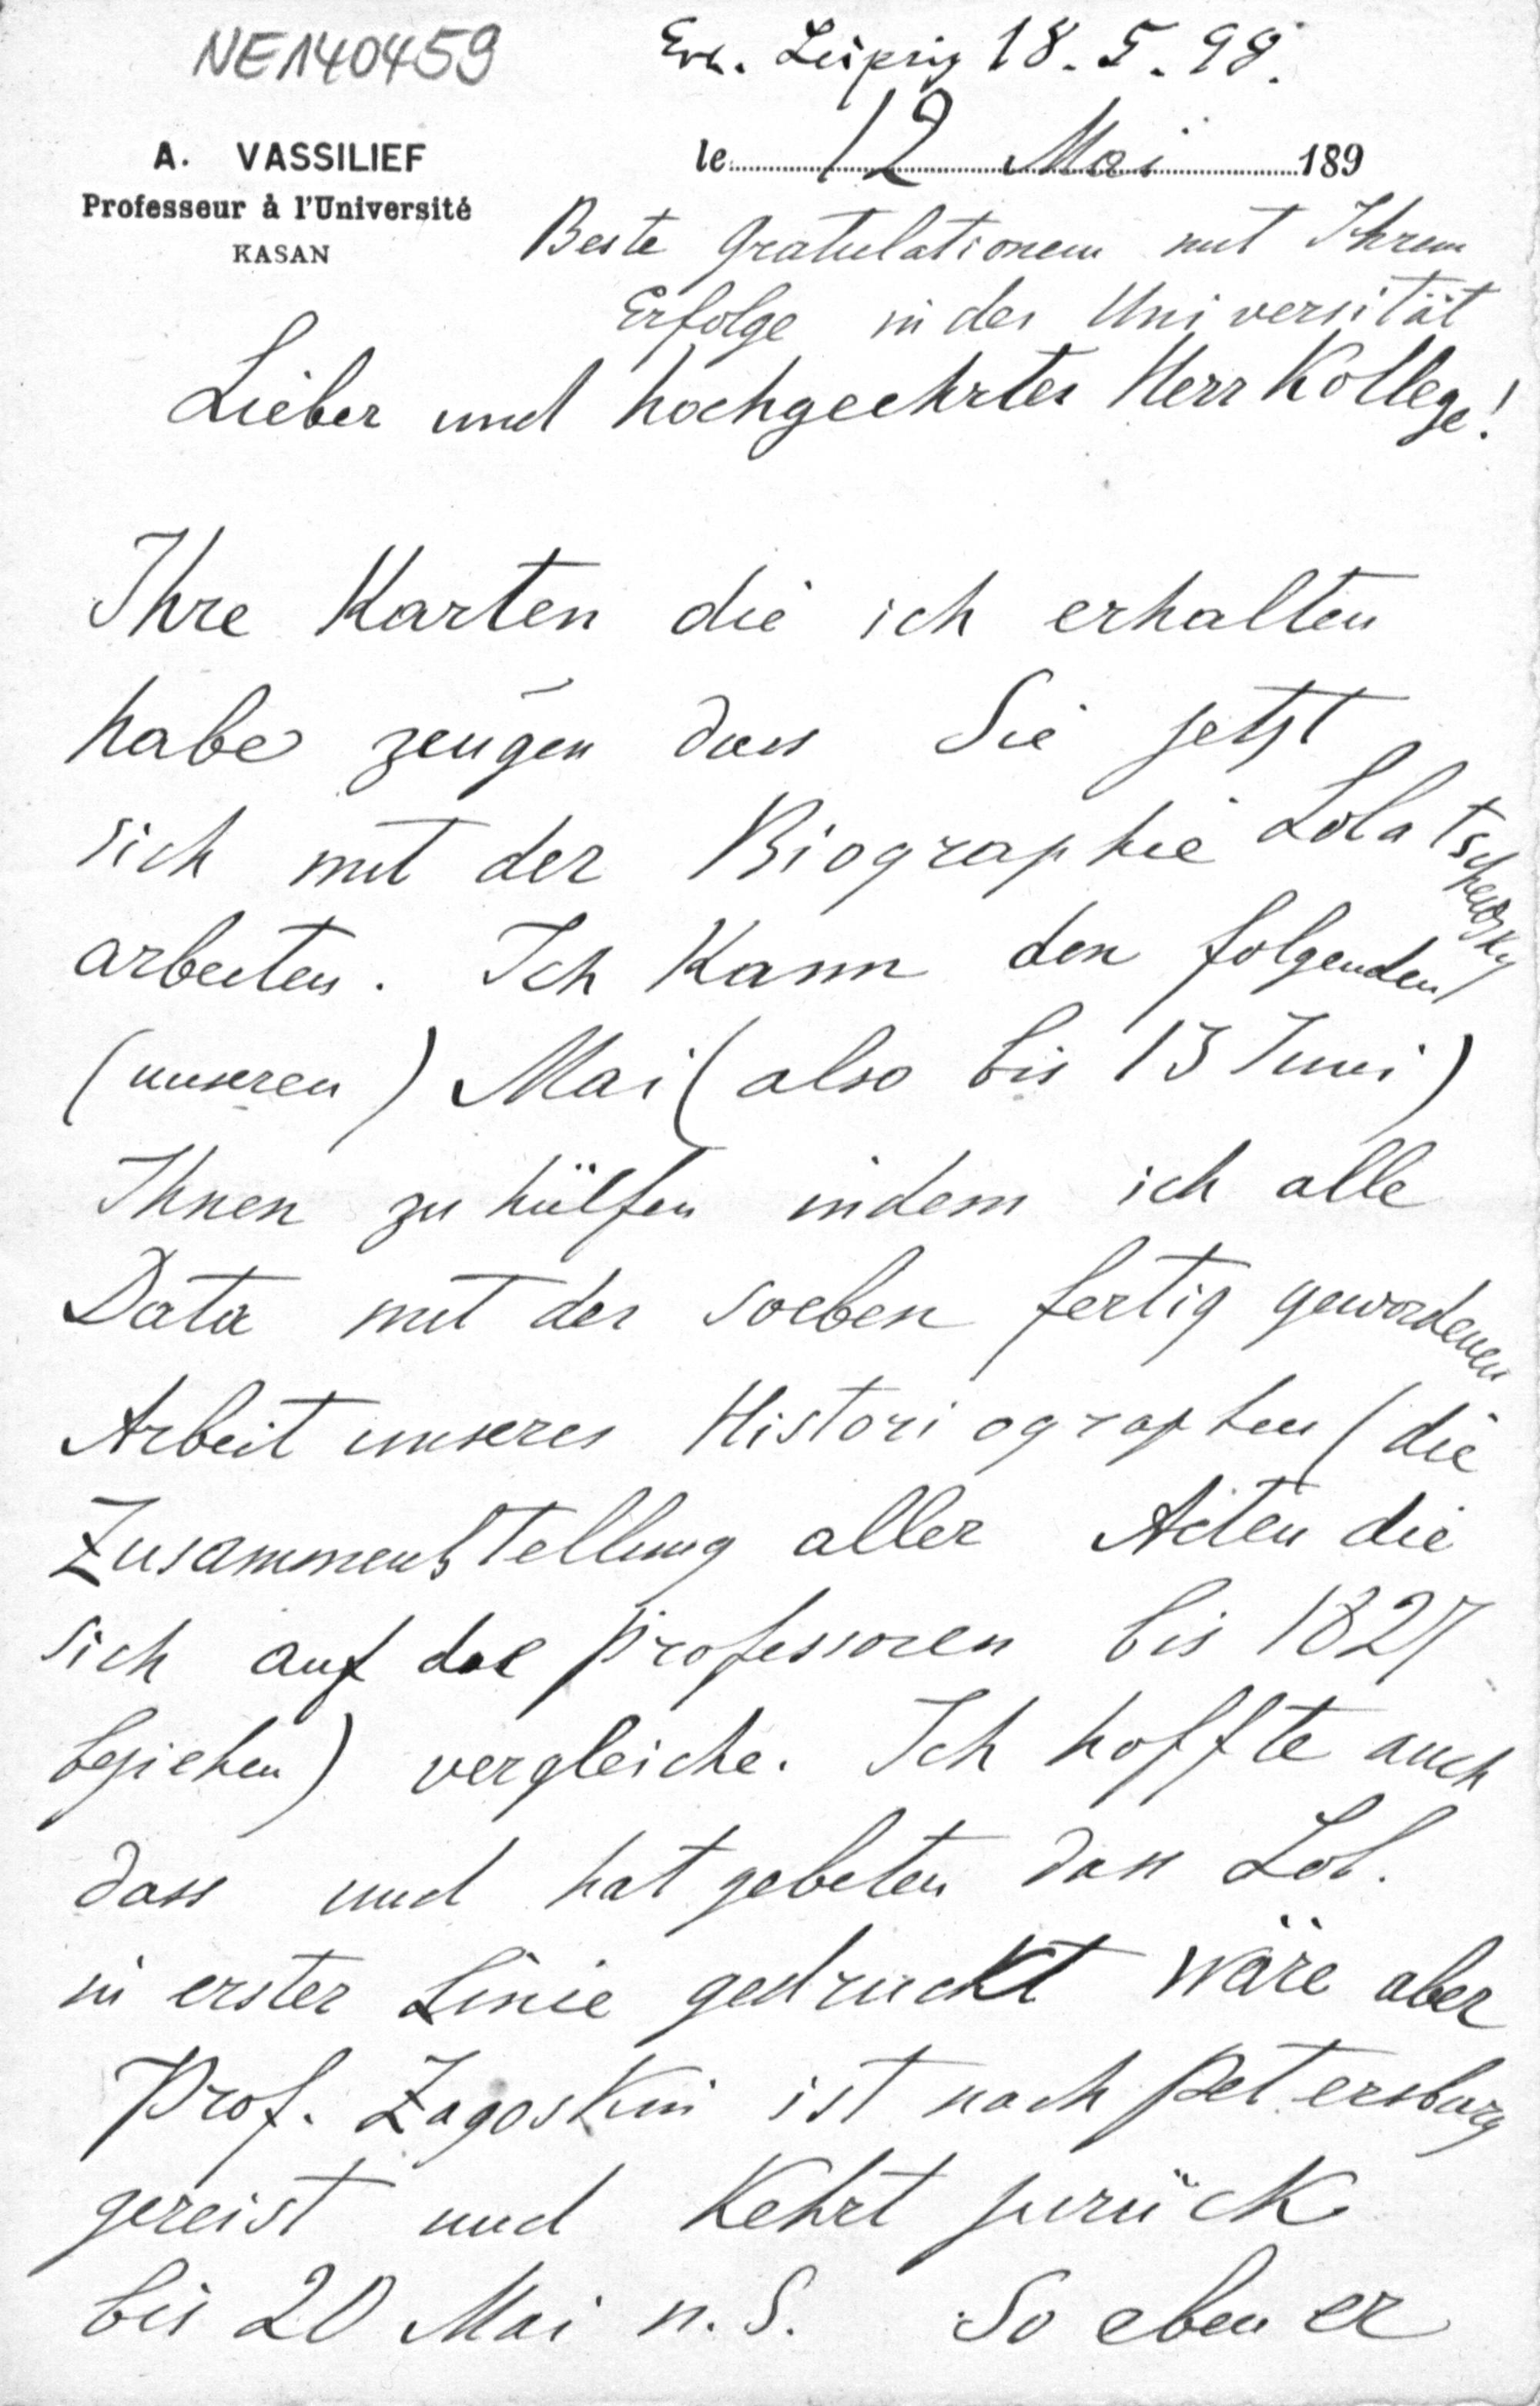 NE140459
Erh. Leipzig 18. 5. 98.
A. VASSILIEF
Professeur à l'Université
KASAN
le 12 Mai 189
Beste Gratulationen mit Ihrem
Erfolge in der Universität
Lieber und hochgeehrter Herr Kollege!
Ihre Karten die ich erhalten
habe zeugen dass Sie jetzt
sich mit der Biographie Lobatschewsky
arbeiten. Ich kann den folgenden
(unseren) Mai (also bis 13 Juni)
Ihnen zu hülfen indem ich alle
Data mit der soeben fertig gewordenen
Arbeit unseres Historiographen (die
Zusammenstellung aller Acten die
sich auf die Professoren bis 1827
beziehen) vergleiche. Ich hoffte auch
dass und hat gebeten dass Lob.
in erster Linie gedruckt wäre aber
Prof. Zagoskin ist nach Petersburg
gereist und kehrt zurück
bis 20 Mai n. S. So eben er